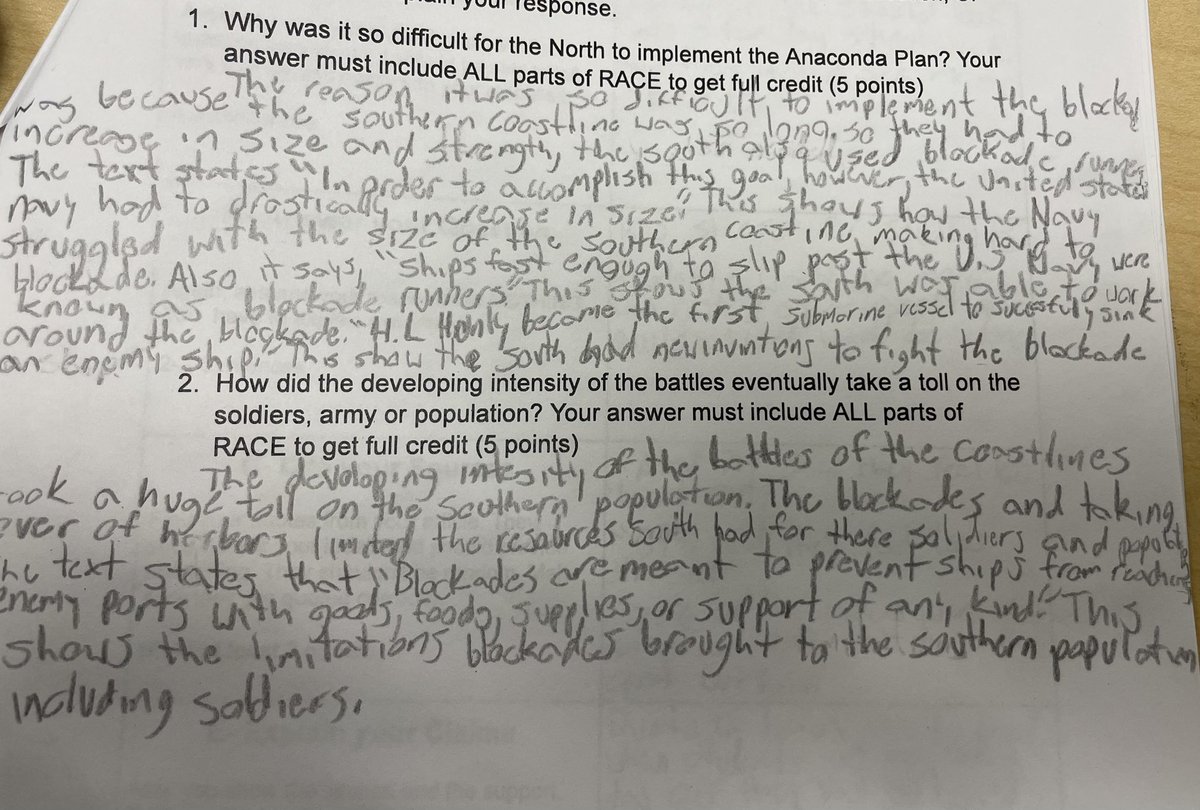 your response.
1. Why was it so difficult for the North to implement the Anaconda Plan? Your
answer must include ALL parts of RACE to get full credit (5 points)
The reason it was so difficult to implement the
was because the southern coastline was so long. so they had to
increase in size and strength, the south also used blockade
The text states "In order to accomplish this goal, however, the United states
navy had to drastically increase in size." This shows how the Navy
struggled with the size of the Southern coastine, making hard to
blockade. Also it says, "ships fast enough to slip past the U.S Navy were
known as blockade runners." This shows the South was able to work
around the blockade. "H.L became the first submarine vessel to sucessfuly sink
an enemy ship." This show the South had to fight the blockade
2. How did the developing intensity of the battles eventually take a toll on the
soldiers, army or population? Your answer must include ALL parts of
RACE to get full credit (5 points)
The of the battles of the coastlines
took a huge toll on the Southern population. The blockades and taking
over of limited the South had for there and
the text states that "Blockades are meant to prevent ships from reaching
enemy ports with goods, foods, supplies, or support of any kind." This
shows the limitations blockades brought to the southern population
including soldiers.